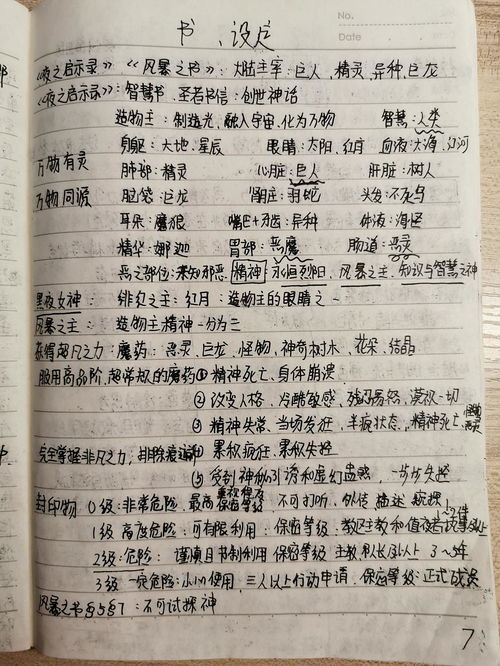 No.
Date
书、设定
《夜之启示录》《风暴之书》：大陆主宰：巨人、精灵、异种、巨龙
《夜之启示录》：智慧书、圣者书信：创世神话
造物主：制造光，融入宇宙，化为万物 智慧：人类
身躯：大地、星辰 眼睛：太阳、红月 血液：大海、江河
万物有灵 肺部：精灵 心脏：巨人 肝脏：树人
万物同源 脑袋：巨龙 肾脏：羽蛇 头发：不死鸟
耳朵：魔狼 嘴巴+牙齿：异种 体液：海怪
精华：娜迦 胃部：恶魔 肠道：恶灵
恶之部位：未知邪恶 精神 永恒烈阳、风暴之主、知识与智慧之神
黑夜女神：绯红之主：红月：造物主的眼睛之一
风暴之主：造物主精神一分为三
获得超凡之力：魔药：恶灵、巨龙、怪物、神奇树木、花朵、结晶
服用高品阶、超常规的魔药①精神死亡、身体崩溃
②改变人格、冷酷敏感、漠视一切
③精神失常、当场发狂、半疯状态、精神死亡
完全掌握非凡之力，排除衰减 ④累积疯狂、累积失控
⑤受到神秘引诱和虚幻蛊惑，一步步失控
封印物 0级：非常危险、最高保密等级、不可打听、外传、描述、窥探
1级 高度危险：可有限利用：保密等级、教区主教和值夜者以上 1~2件
2级：危险：谨慎且书制利用 保密等级 主教、队长以上 3~5年
3级 一定危险：小心使用，三人以上行动申请 保密等级：正式成员
风暴之书§5§7：不可试探神
7